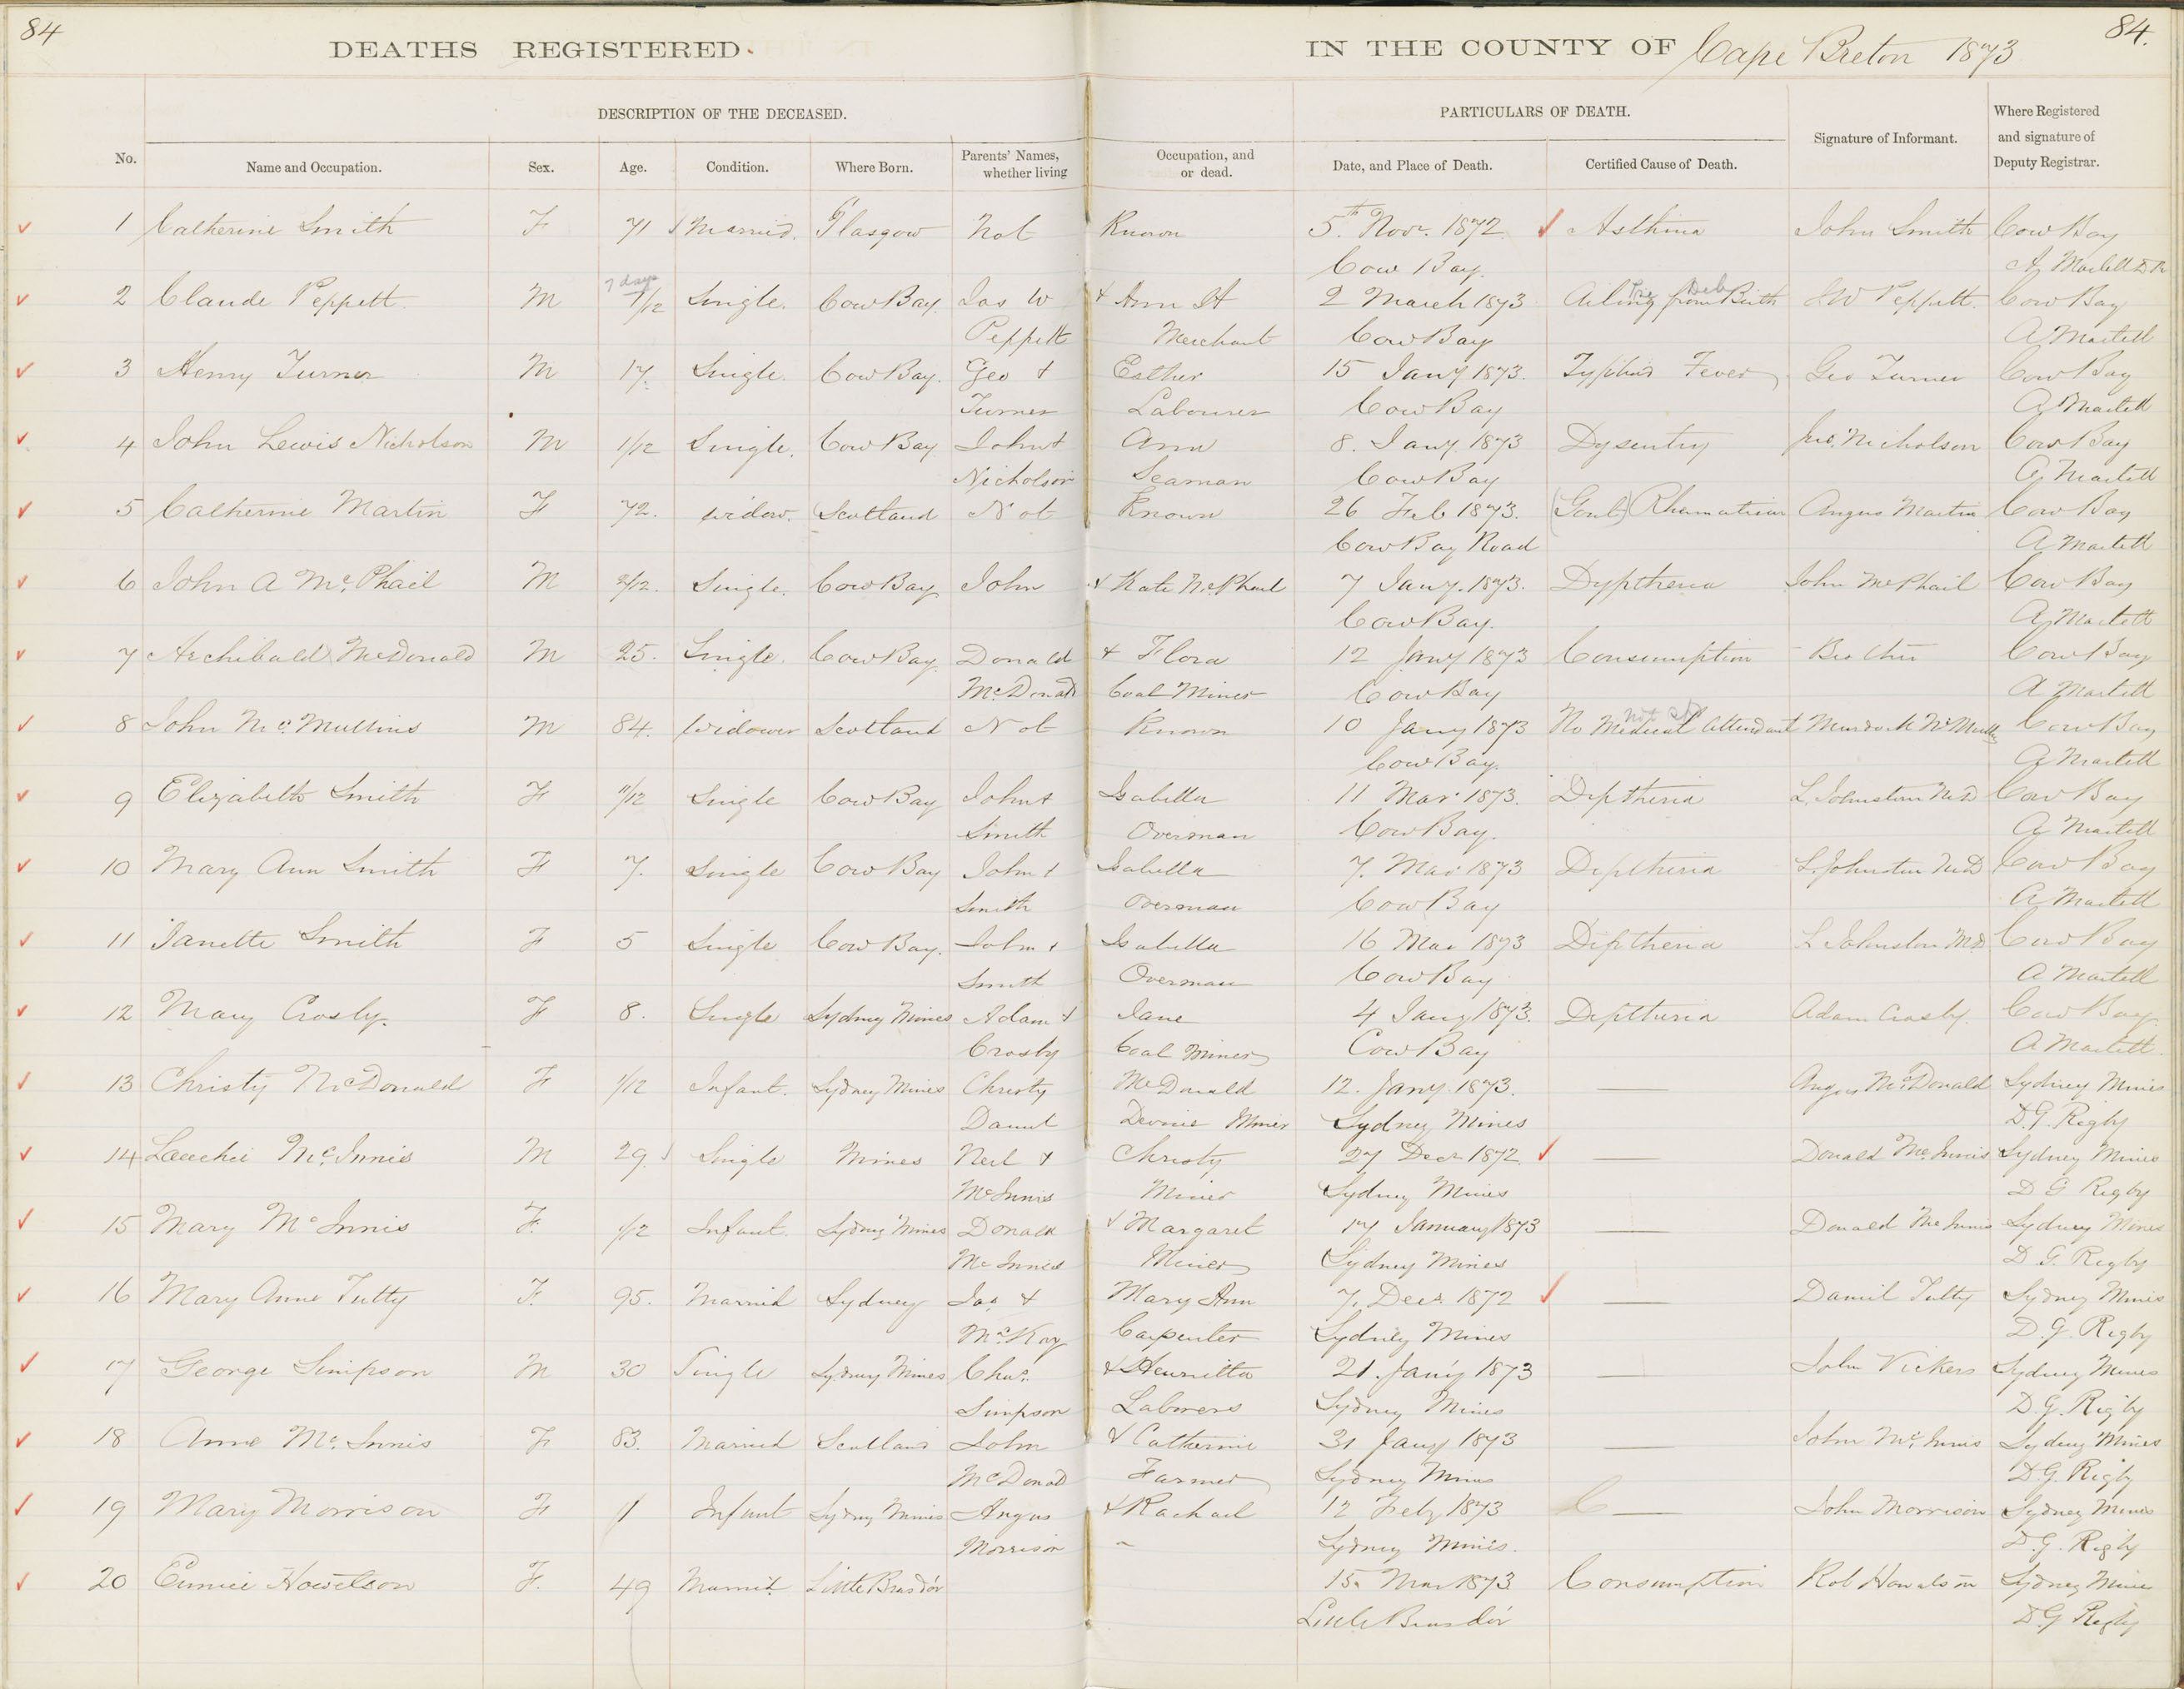 84
84.
DEATHS REGISTERED
IN THE COUNTY OF Cape Breton 1873
DESCRIPTION OF THE DECEASED.
PARTICULARS OF DEATH.
No. Name and Occupation. Sex. Age. Condition. Where Born. Parents' Names, whether living Occupation, and or dead. Date, and Place of Death. Certified Cause of Death. Signature of Informant. Where Registered and signature of Deputy Registrar.
1 Catherine Smith F 71 Married. Glasgow Not Known 5th Novr. 1872 Asthma John Smith Cow Bay
Cow Bay. A Martell D R
7 days
2 Claude Peppett M 1/12 Single. Cow Bay. Jas W + Ann H 2 March 1873 Ailing from Birth J W Peppett. Cow Bay
Peppett Merchant Cow Bay A Martell
3 Henry Turner M 17. Single. Cow Bay. Geo + Esther 15 Jany 1873. Typhus Fever Geo Turner Cow Bay
Turner Labourer Cow Bay A Martell
4 John Lewis Nicholson M 1/12 Single. Cow Bay John + Ann 8. Jany 1873 Dysentry Jno. Nicholson Cow Bay
Nicholson Seaman Cow Bay A Martell
5 Catherine Martin F 72. widow. Scotland Not Known 26 Feb 1873. (Gout) Rhumatism Angus Martin Cow Bay
Cow Bay Road A Martell
6 John A McPhail M 2/12. Single. Cow Bay John + Kate McPhail 7 Jany. 1873. Dyptheria John McPhail Cow Bay
Cow Bay. A Martell
7 Archibald McDonald M 25. Single. Cow Bay Donald + Flora 12 Jany 1873 Consumption Brother Cow Bay
McDonald Coal Miner Cow Bay A Martell
8 John McMullins M 84. Widower Scotland Not Known 10 Jany 1873 No Medical Attendant Murdock McMullin Cow Bay
Cow Bay. A Martell
9 Elizabeth Smith F 11/12 Single Cow Bay John + Isabella 11 Mar 1873. Diptheria L. Johnston MD Cow Bay
Smith Overman Cow Bay. A Martell
10 Mary Ann Smith F 7. Single Cow Bay John + Isabella 7. Mar 1873 Diptheria L. Johnston MD Cow Bay
Smith Overman Cow Bay A Martell
11 Janette Smith F 5 Single Cow Bay. John + Isabella 16 Mar 1873 Diptheria L Johnston MD Cow Bay
Smith Overman Cow Bay A Martell
12 Mary Crosby. F 8. Single Sydney Mines Adam + Jane 4 Jany 1873. Diptheria Adam Crosby. Cow Bay
Crosby Coal Miner Cow Bay A Martell.
13 Christy McDonald F 1/12 Infant. Sydney Mines Christy McDonald 12. Jany. 1873. — Angus McDonald Sydney Mines
Daniel Devine Miner Sydney Mines D.G. Rigby
14 Lauchie McInnis M 29 Single Mines Neil + Christy 27 Decr 1872. — Donald McInnis Sydney Mines
McInnis Miner Sydney Mines D G Rigby
15 Mary McInnis F. 1/12 Infant. Sydney Mines Donald + Margaret 17 January 1873 — Donald McInnis Sydney Mines
McInnis Miner Sydney Mines D G. Rigby
16 Mary Anne Tutty F. 95. Married Sydney Jas + Mary Ann 7. Decr. 1872 — Daniel Tutty Sydney Mines
McKay Carpenter Sydney Mines D.G. Rigby
17 George Simpson M 30 Single Sydney Mines Chas. + Henrietta 21. Jany 1873 — John Vickers Sydney Mines
Simpson Laborers Sydney Mines D.G. Rigby
18 Anne McInnis F 83. Married Scotland John + Catherine 31 Jany 1873 — John McInnis Sydney Mines
McDonald Farmer Sydney Mines D.G. Rigby
19 Mary Morrison F 1 Infant Sydney Mines Angus + Rachael 12 Feby 1873 — John Morrison Sydney Mines
Morrison Sydney Mines. D.G. Rigby
20 Eunice Howetson F. 49 Married Little Brasdor 15. Mar 1873 Consumption Rob Howatson Sydney Mines
Little Brasdor D.G Rigby